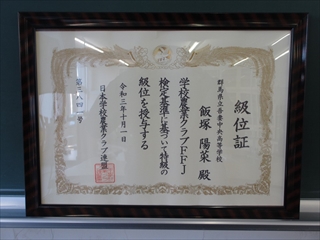 級位証
群馬県立吾妻中央高等学校
飯塚 陽菜 殿
学校農業クラブFFJ
検定基準に基づいて特級の
級位を授与する
令和三年十月一日
日本学校農業クラブ連盟